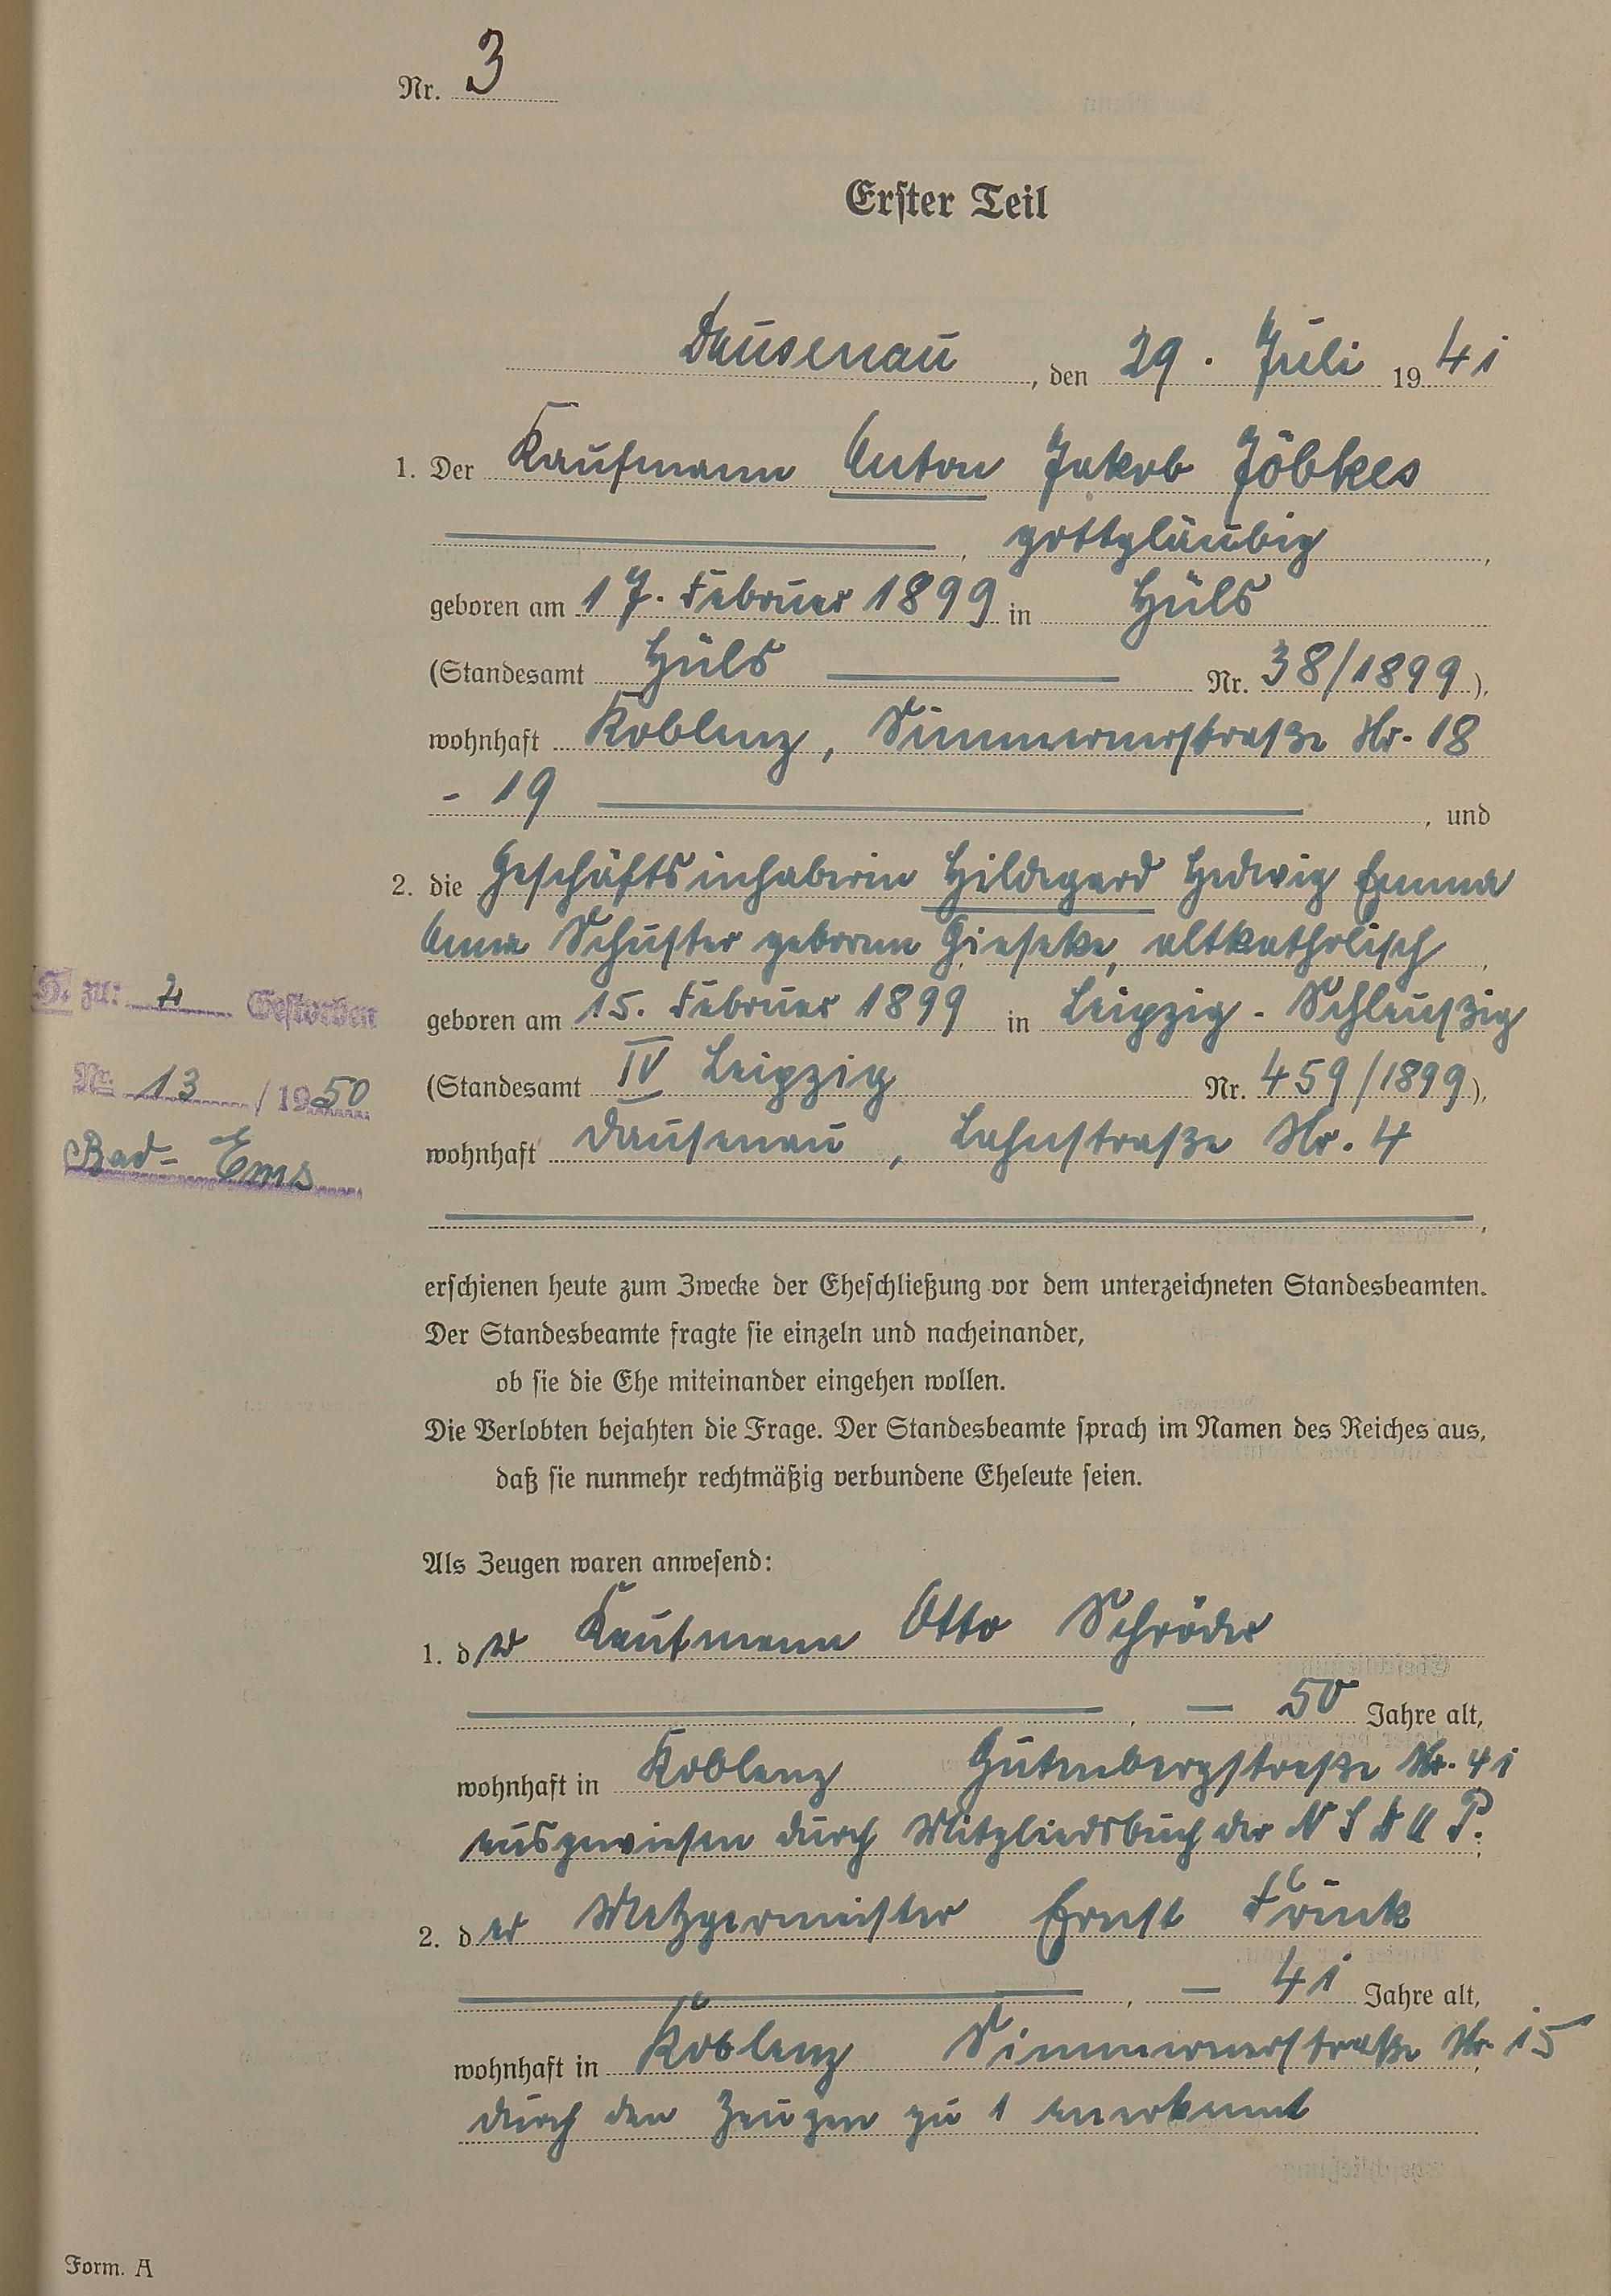 Nr. 3
Erster Teil
Dausenau, den 29. Juli 1941
1. Der Kaufmann Anton Jakob Jöbkes
, gottgläubig,
geboren am 17. Februar 1899 in Hüls
(Standesamt Hüls Nr. 38/1899),
wohnhaft Koblenz, Simmernerstraße Nr. 18
- 19, und
2. die Geschäftsinhaberin Hildegard Hedwig Emma
Anna Schuster geborene Gieseke, altkatholisch,
H. zu: 2 Gestorben
geboren am 15. Februar 1899 in Leipzig - Schleußig
Nr. 13 / 1950
(Standesamt IV Leipzig Nr. 459/1899),
Bad-Ems
wohnhaft Dausenau, Lahnstraße Nr. 4
,
erschienen heute zum Zwecke der Eheschließung vor dem unterzeichneten Standesbeamten.
Der Standesbeamte fragte sie einzeln und nacheinander,
ob sie die Ehe miteinander eingehen wollen.
Die Verlobten bejahten die Frage. Der Standesbeamte sprach im Namen des Reiches aus,
daß sie nunmehr rechtmäßig verbundene Eheleute seien.
Als Zeugen waren anwesend:
1. der Kaufmann Otto Schröder
, — 50 Jahre alt,
wohnhaft in Koblenz Gutenbergstraße Nr. 41
ausgewiesen durch Mitgliedsbuch der N S D A P.
2. der Metzgermeister Ernst
, — 41 Jahre alt,
wohnhaft in Koblenz Simmernerstraße Nr. 15
durch den Zeugen zu 1 anerkannt
Form. A